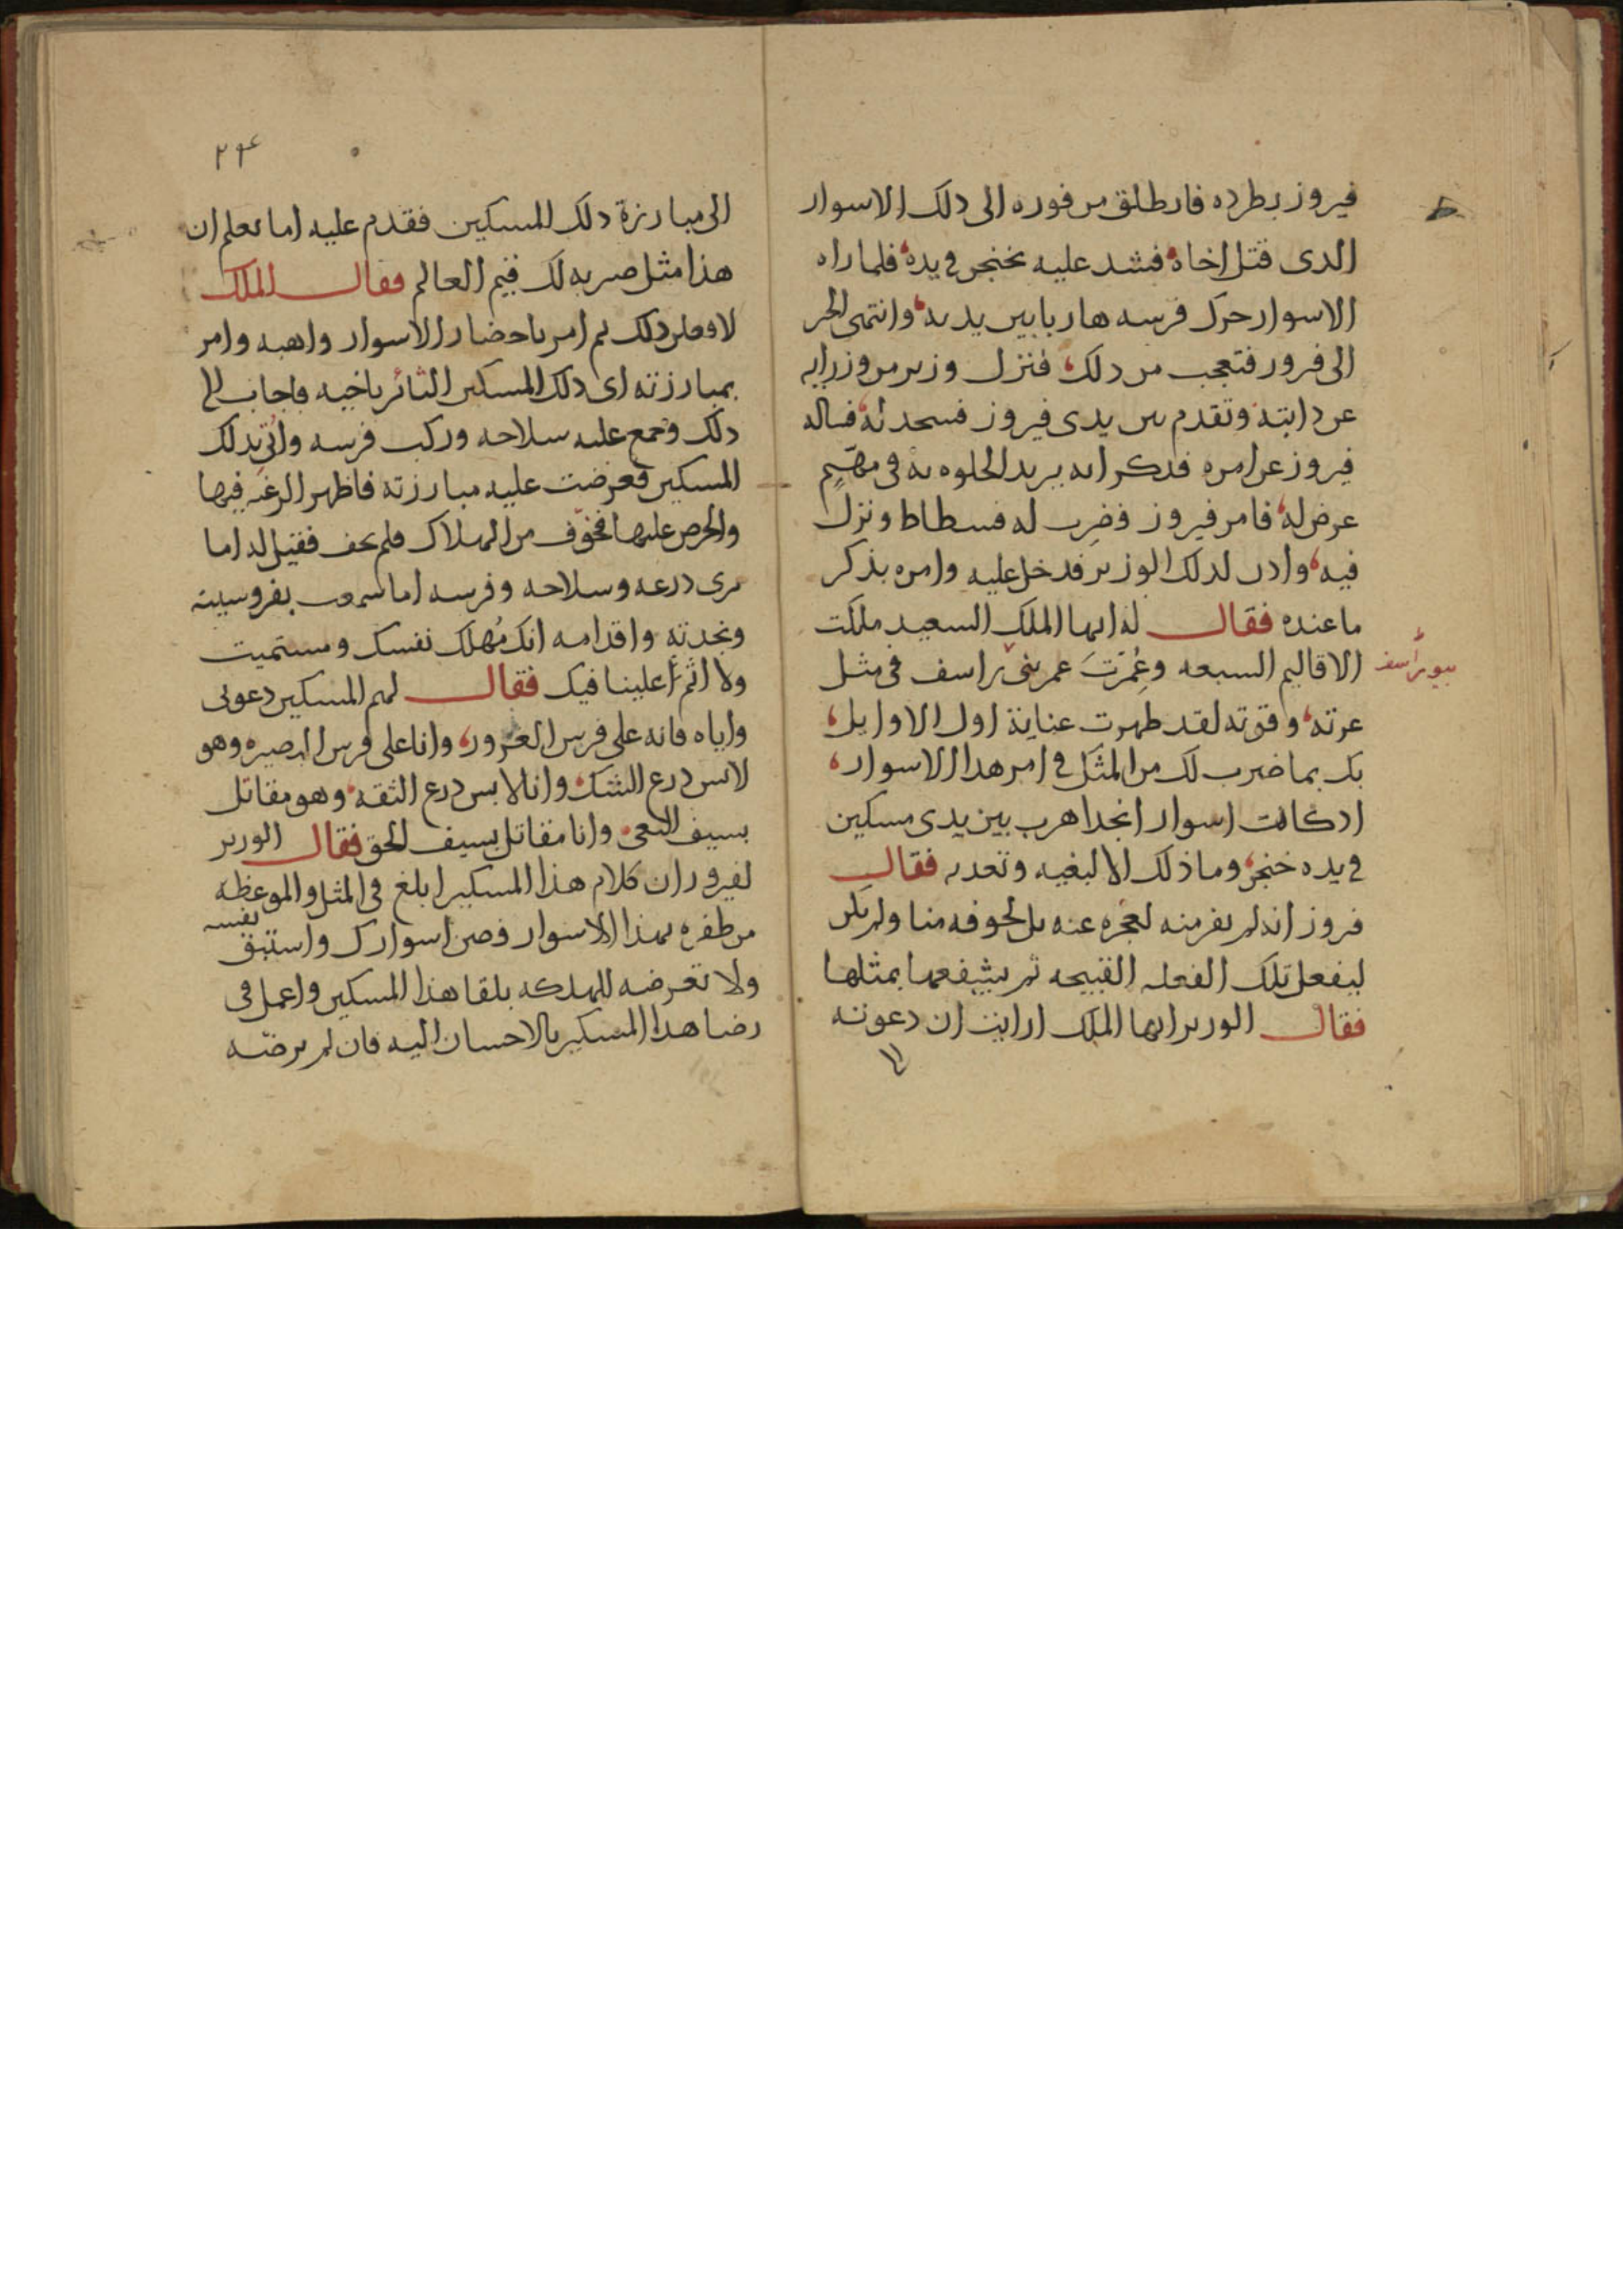 فيروز بطرده فانطلق من فوره الى دلك الاسوار
الدى قتل اخاه فشد عليه بخنجر في يده فلما راه
الاسوار حرك فرسه هاربا بين يديه وانتهى الخبر
الى فيروز فتعجب من دلك فنزل وزير من وزرايه
عن دابته وتقدم بين يدى فيروز فسجد له فساله
فيروز عن امره فدكر انه يريد الخلوه به فى مهم
عرض له فامر فيروز فضرب له فسطاط ونزل
فيه وادن لدلك الوزير فدخل عليه وامره بذكر
ما عنده فقال له ايها الملك السعيد ملكت
الاقاليم السبعه وعمرت عمر بيوراسف فى مثل
بيوراسف
عزته وقوته لقد ظهرت عناية اول الاوايل
بك بما ضرب لك من المثل في امر هدا الاسوار
اد كانت اسوار انجدا هرب بين يدى مسكين
في يده خنجر وما ذلك الا لبغيه وتعديه فقال
فيروز انه لم يفر منه لعجزه عنه بل لخوفه منا ولم يكن
ليفعل تلك الفعله القبيحه ثم يشفعها بمثلها
فقال الوزير ايها الملك ارايت ان دعوته
الى
٢٤
الى مبارزة دلك المسكين فقدم عليه اما تعلم ان
هذا مثل ضربه لك قيم العالم فقال الملك
لافعلن دلك ثم امر باحضار الاسوار واهبه وامر
بمبارزته اى دلك المسكين الثائر باخيه فاجاب الى
دلك وجمع عليه سلاحه وركب فرسه واتي بدلك
المسكين فعرضت عليه مبارزته فاظهر الرغبه فيها
والحرص عليها فخوف من الهلاك فلم يخف فقيل له اما
ترى درعه وسلاحه وفرسه اما سمعت بفروسيته
ونجدته واقدامه انك مهلك نفسك ومستميت
ولا اثم علينا فيك فقال لهم المسكين دعونى
واياه فانه على فرس الغرور وانا على فرس البصيره وهو
لابس درع الشك وانا لابس درع الثقه وهو مقاتل
بسيف البغى وانا مقاتل بسيف الحق فقال الوزير
لفيروز ان كلام هذا المسكين ابلغ فى المثل والموعظه
من ظفره بهذا الاسوار فصن اسوارك واستبق نفسه
ولا تعرضه للهلكه بلقا هذا المسكين واعمل فى
رضا هدا المسكين بالاحسان اليه فان لم يرضه